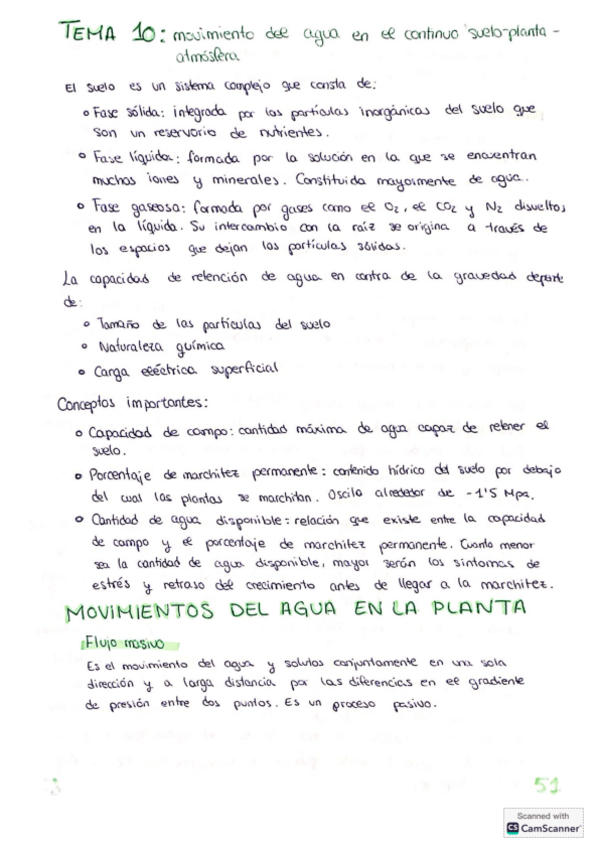 TEMA 10: movimiento del agua en el continuo suelo-planta-
atmósfera
El suelo es un sistema complejo que consta de:
◦ Fase sólida: integrada por las partículas inorgánicas del suelo que
son un reservorio de nutrientes.
◦ Fase líquida: formada por la solución en la que se encuentran
muchos iones y minerales. Constituida mayormente de agua.
◦ Fase gaseosa: formada por gases como el O2, el CO2 y N2 disueltos
en la líquida. Su intercambio con la raíz se origina a través de
los espacios que dejan las partículas sólidas.
La capacidad de retención de agua en contra de la gravedad depende
de:
◦ Tamaño de las partículas del suelo
◦ Naturaleza química
◦ Carga eléctrica superficial
Conceptos importantes:
◦ Capacidad de campo: cantidad máxima de agua capaz de retener el
suelo.
◦ Porcentaje de marchitez permanente: contenido hídrico del suelo por debajo
del cual las plantas se marchitan. Oscila alrededor de -1'5 Mpa.
◦ Cantidad de agua disponible: relación que existe entre la capacidad
de campo y el porcentaje de marchitez permanente. Cuanto menor
sea la cantidad de agua disponible, mayor serán los síntomas de
estrés y retraso del crecimiento antes de llegar a la marchitez.
MOVIMIENTOS DEL AGUA EN LA PLANTA
Flujo masivo
Es el movimiento del agua y solutos conjuntamente en una sola
dirección y a larga distancia por las diferencias en el gradiente
de presión entre dos puntos. Es un proceso pasivo.
51
Scanned with
CS CamScanner